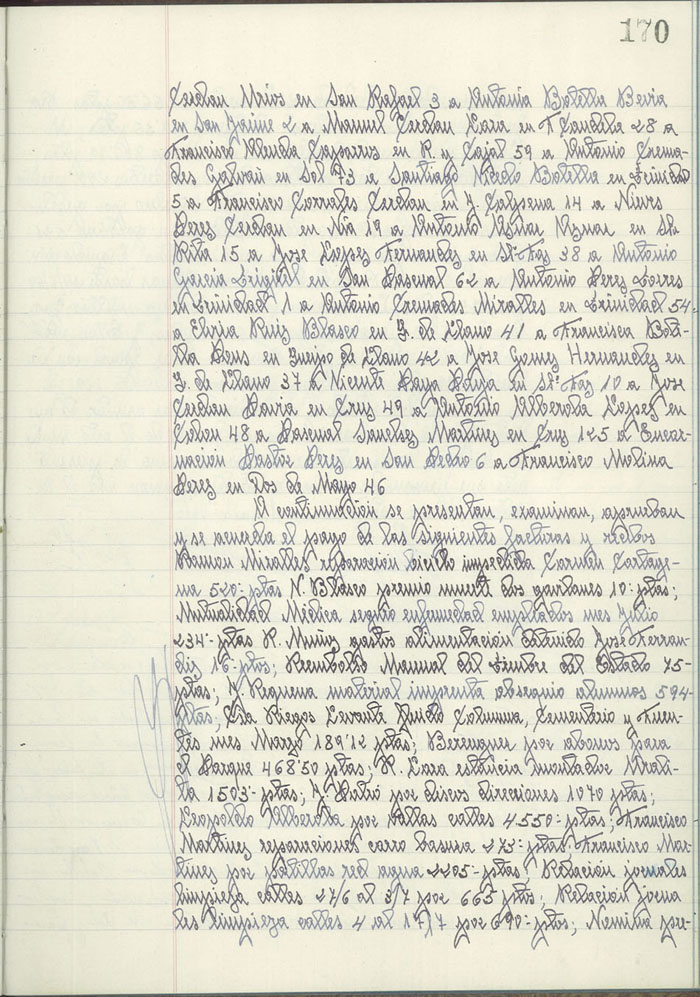 170
Cerdan Mrios en San Rafael 3 a Antonia Botella Bevia
en San Jaime 2 a Manuel Cerdan Lara en F Candela 28 a
Francisco Aleuda Casparrus en R. y Cajal 59 a Antonio Crema-
des Galvañ en Sol 73 a Santiago Nicolo Botella en Trinidad
5 a Francisco Corrales Cerdan en J. Calpena 14 a Nieves
Peres Cerdan en Nia 19 a Antonio Aznar Aznar en Sta
Rita 15 a Jose Lopez Fernandes en Sta Fas 38 a Antonio
Garcia en San Pascual 62 a Antonio Peres Torres
en Trinidad 1 a Antonio Cremades Miralles en Trinidad 54
a Elvira Ruiz Blasco en Q. de Llano 41 a Francisca Bote-
lla Pens en Queipo de Llano 42 a Jose Gomes Hernandes en
Q. de Llano 37 a Vicente Paya en Sta Fas 10 a Jose
Cerdan Pavia en Crus 49 a Antonio Alberola Lopes en
Colon 48 a Pascual Sanches Martines en Crus 125 a Encar-
nación Pastor Peres en San Pedro 6 a Francisco Molina
Peres en Dos de Mayo 46
A continuación se presentan, examinan, aprueban
y se acuerda el pago de las siguientes facturas y recibos
Ramon Miralles reparacion triciclo impedida Carmen Cartage-
na 520'- ptas N. Blasco premio muerte dos gavilanes 10'- ptas;
Mutualidad Médica seguro enfermedad empleados mes Julio
234'- ptas R. Muñoz gastos alimentación detenido Jose Ferran-
diz 16'- ptas; Reembolso Manual del Timbre del Estado 75'-
ptas; J. Requena material imprenta obsequio alumnos 594
ptas; Cia Riegos Levante fluido Columna, Cementerio y Fuen-
tes mes Marzo 189'12 ptas; Berenguer por abonos para
el Parque 468'50 ptas; R. Lara estancia
1503'- ptas; J. por discos direcciones 1070 ptas;
Leopoldo Alberola por vallas calles 4.550'- ptas; Francisco
Martines reparaciones carro basura 273'- ptas. Francisco Mar-
tines por palillas red agua 2205'- ptas; Relación jornales
limpieza calles 27/6 al 3/7 por 665 ptas; Relación jorna
les limpieza calles 4 al 17/7 por 690'- ptas; Nomina pre-